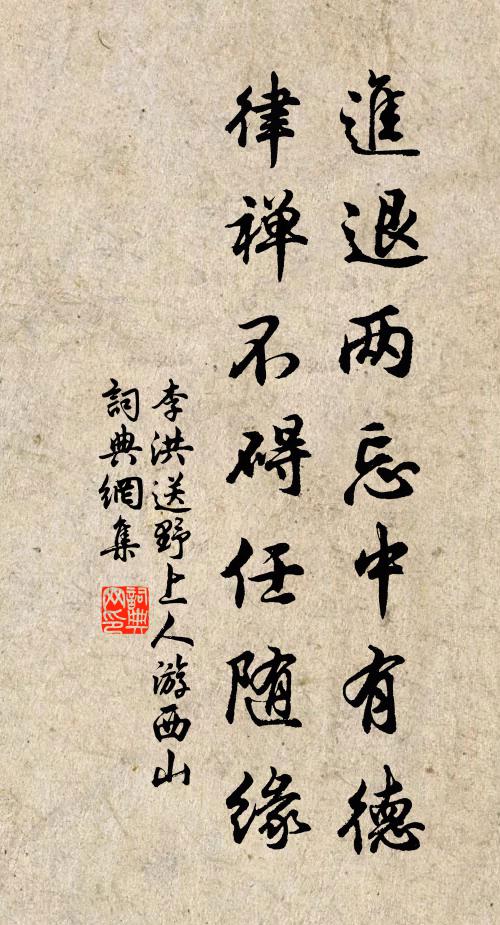 進退两忘中有德
律禅不碍任随缘
李洪送野上人游西山
詞典網集
詞典
网印